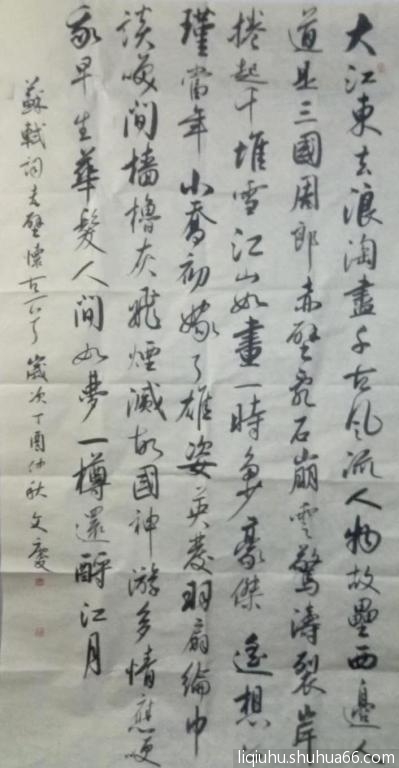 大江東去浪淘盡千古風流人物故壘西邊人
道是三國周郎赤壁亂石崩雲驚濤裂岸
捲起千堆雪江山如畫一時多少豪傑遙想
瑾當年小喬初嫁了雄姿英發羽扇綸巾
談笑間檣櫓灰飛煙滅故國神游多情應笑
我早生華髮人間如夢一樽還酹江月
蘇軾詞赤壁懷古 歲次丁酉仲秋 文慶
liqiuhu.shuhua66.com